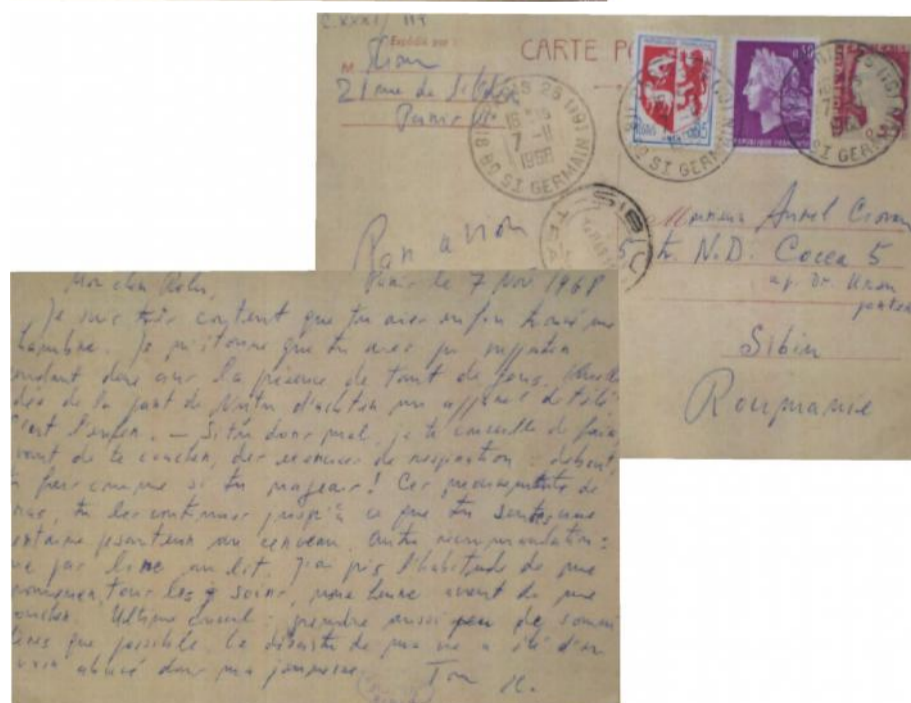 C. XXXI / 119
Expédié par :
CARTE
M Cioran
21 rue de l'Odéon
Paris VIe
PARIS 25 (19)
7 - 11
1968
ST GERMAIN
REPUBLIQUE FRANÇAISE
0,05
0,30
REPUBLIQUE FRANÇAISE
SIBIU
Par avion
Monsieur Aurel Cioran
str. N.D. Cocea 5
ap. Dr. 
Sibiu
Roumanie
Mon cher Relu, Paris le 7 Nov 1968
Je suis très content que tu aies enfin trouvé une
chambre. Je m'étonne que tu aies pu supporter
pendant deux ans la présence de tant de gens.
idée de la part de d'acheter un appareil de télé
C'est l'enfer. — Si tu dors mal, je te conseille de faire
avant de te coucher, des exercices de respiration : debout,
tu fais comme si tu nageais ! Ces mouvements de
tu les continues jusqu'à ce que tu sentes une
certaine pesanteur au cerveau. Autre recommandation :
ne pas lire au lit. J'ai pris l'habitude de me
promener, tous les soirs, une heure avant de me
coucher. Ultime conseil : prendre aussi peu de somni
fères que possible. Le désastre de ma vie a été d'en
avoir abusé dans ma jeunesse. Ton